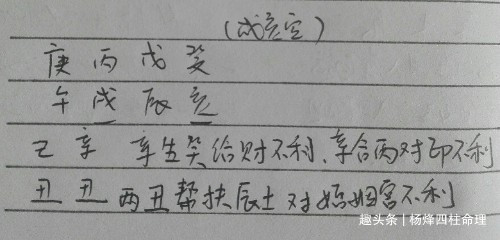 (戌亥空)
庚 丙 戊 癸
午 戌 辰 亥
己 辛 辛生癸给财不利、辛合丙对印不利
丑 丑 两丑帮扶辰土对婚姻宫不利
趣头条 | 杨烽四柱命理